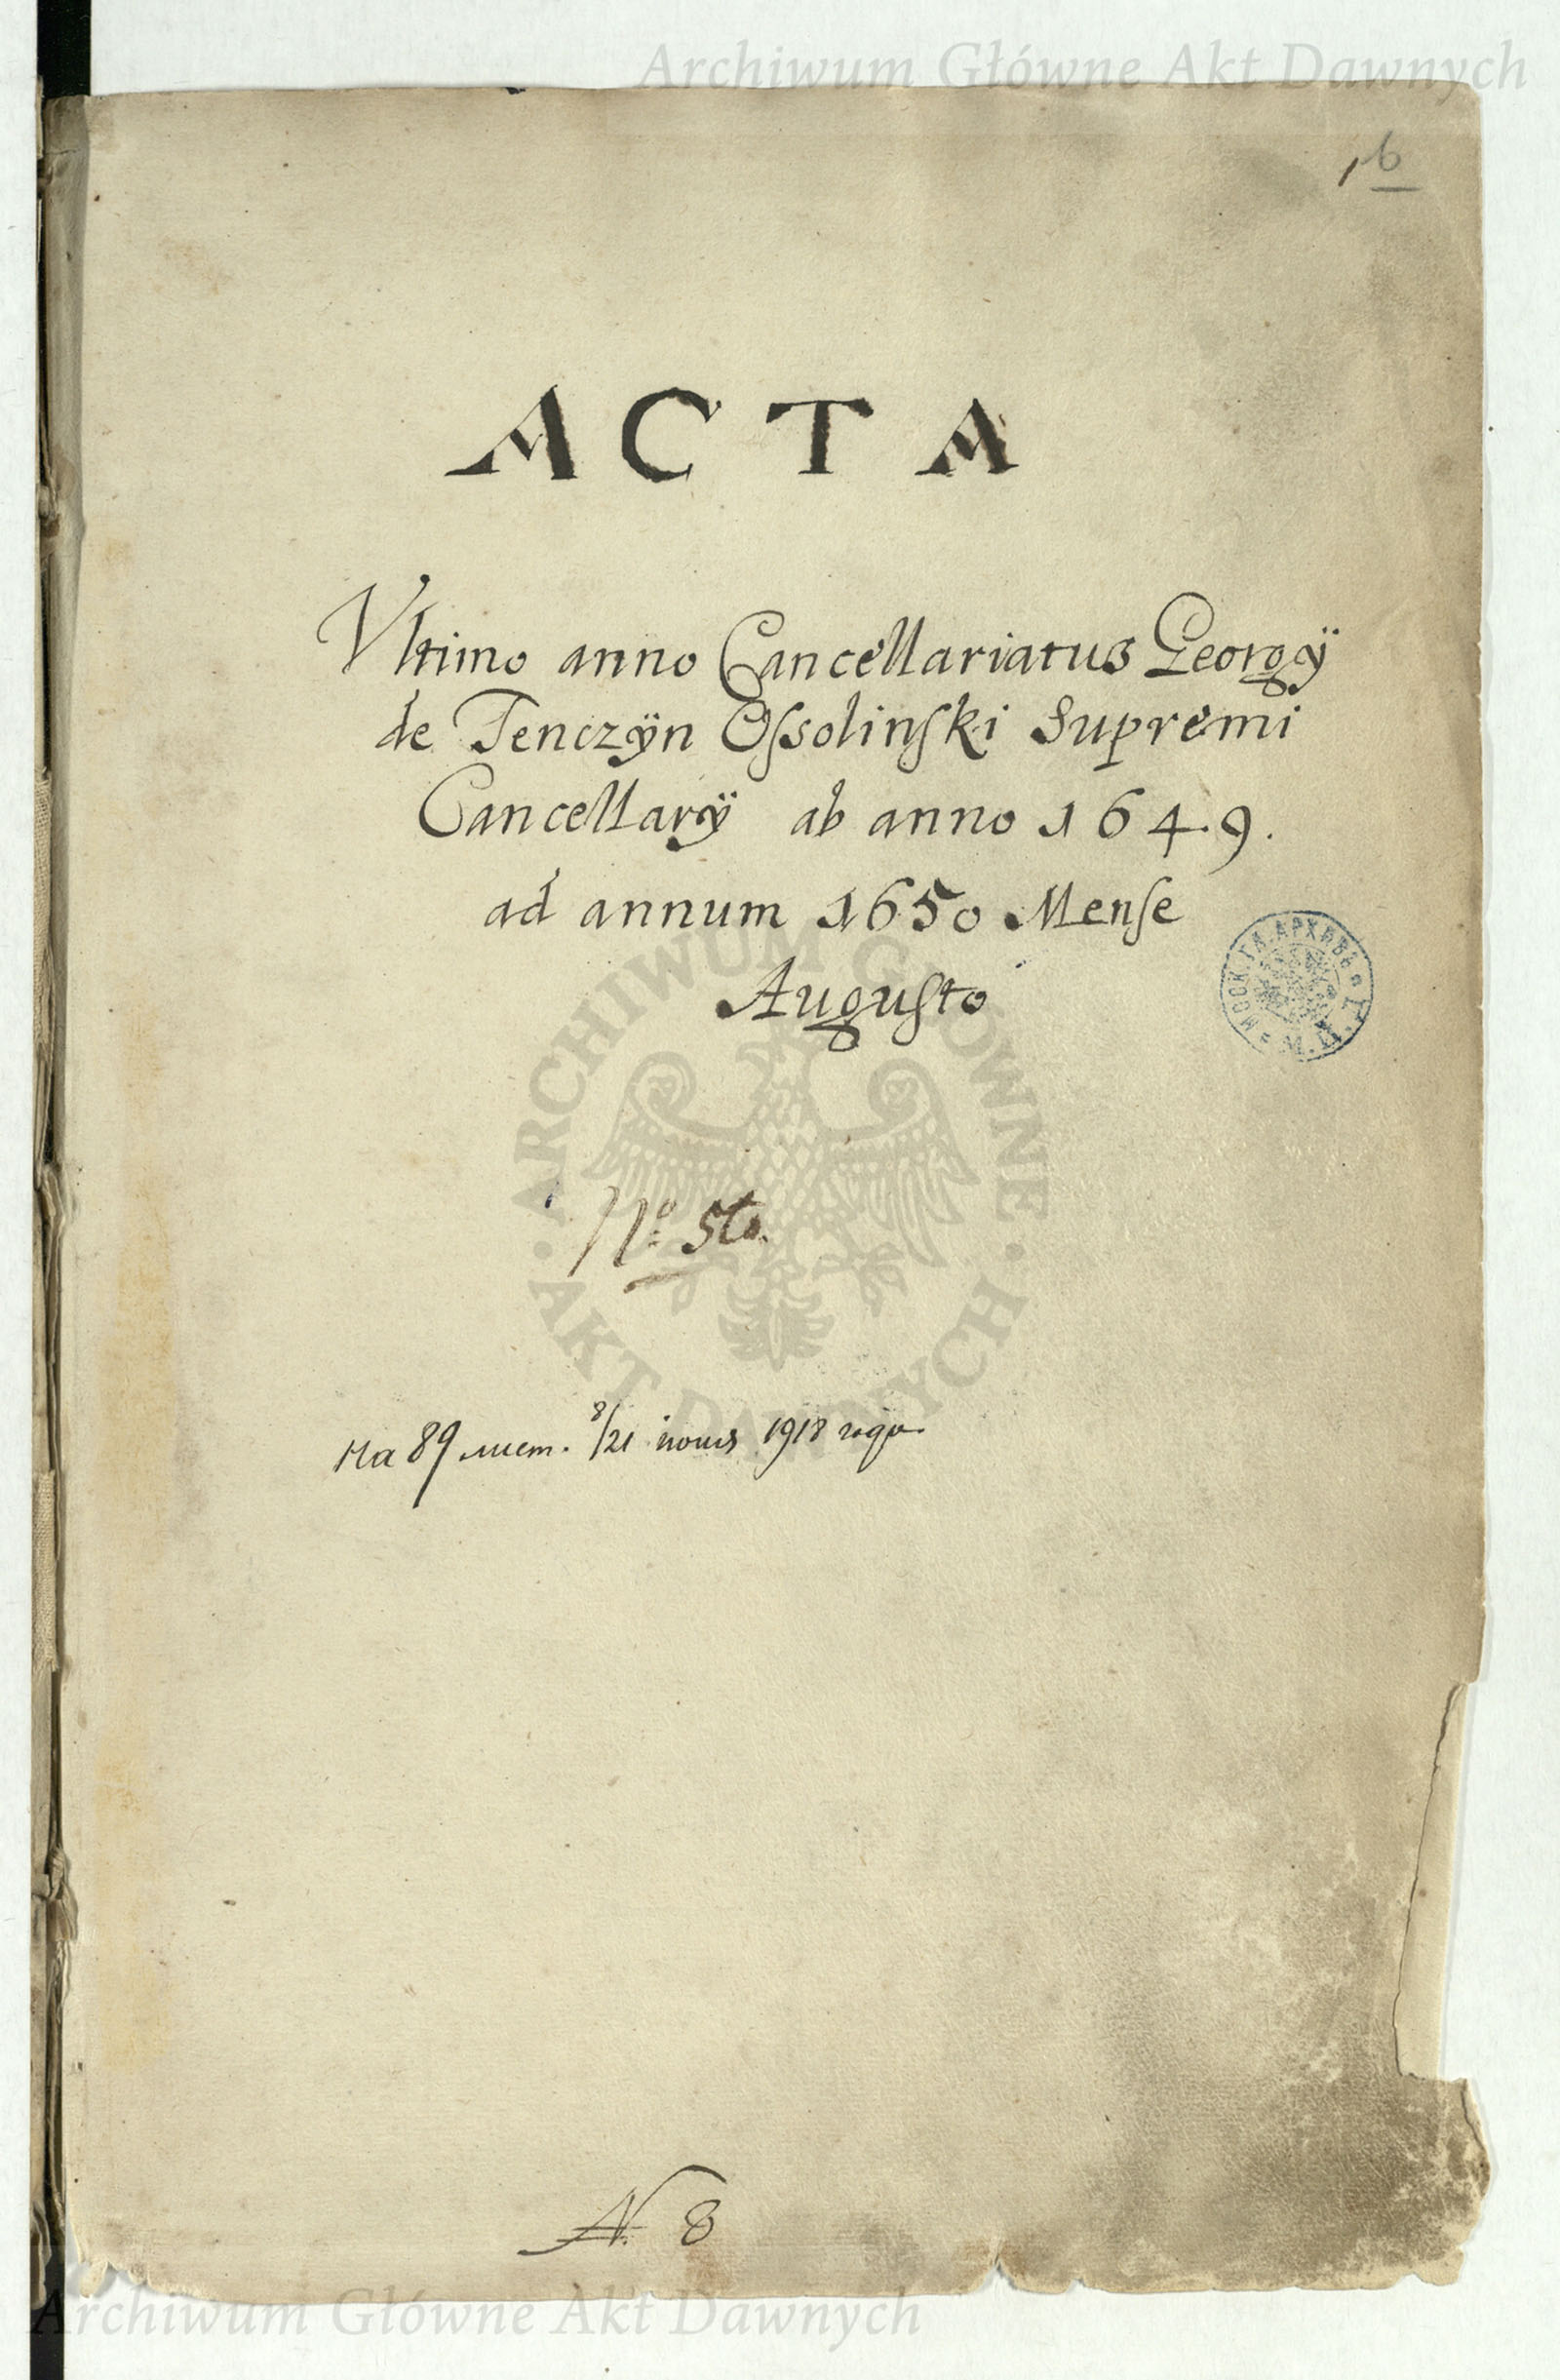 Archiwum Główne Akt Dawnych
16
ACTA
Vltimo anno Cancellariatus Georgÿ
de Tenczÿn Ossolinski Supremi
Cancellarÿ ab anno 1649.
ad annum 1650 Mense
Augusto
МОСК. ГЛ. АРХИВЪ М. И. Д.
ARCHIWUM GŁÓWNE
AKT DAWNYCH
No 5to.
На 89 лист. 8/21 июня 1918 года.
N. 8
Archiwum Główne Akt Dawnych